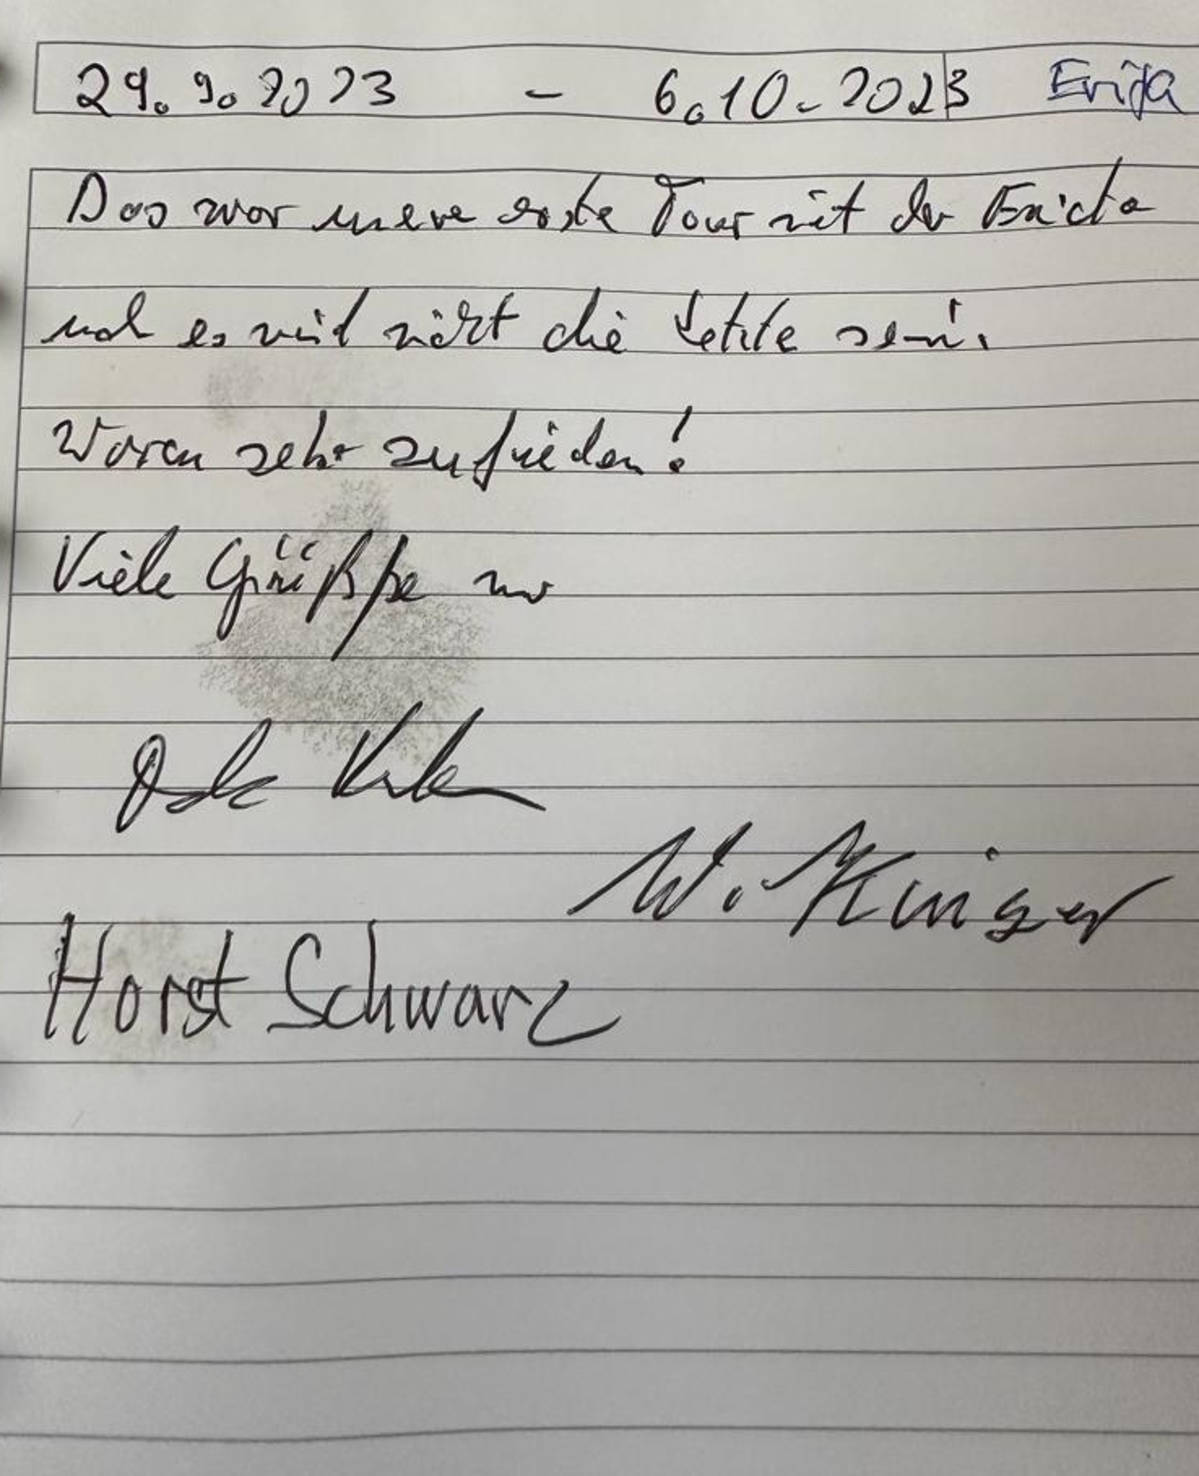 29.9.2023 - 6.10.2023
Das war unsere erste Tour mit der
und es wird nicht die letzte sein.
Waren sehr zufrieden!
Viele Grüße
W.
Horst Schwarz